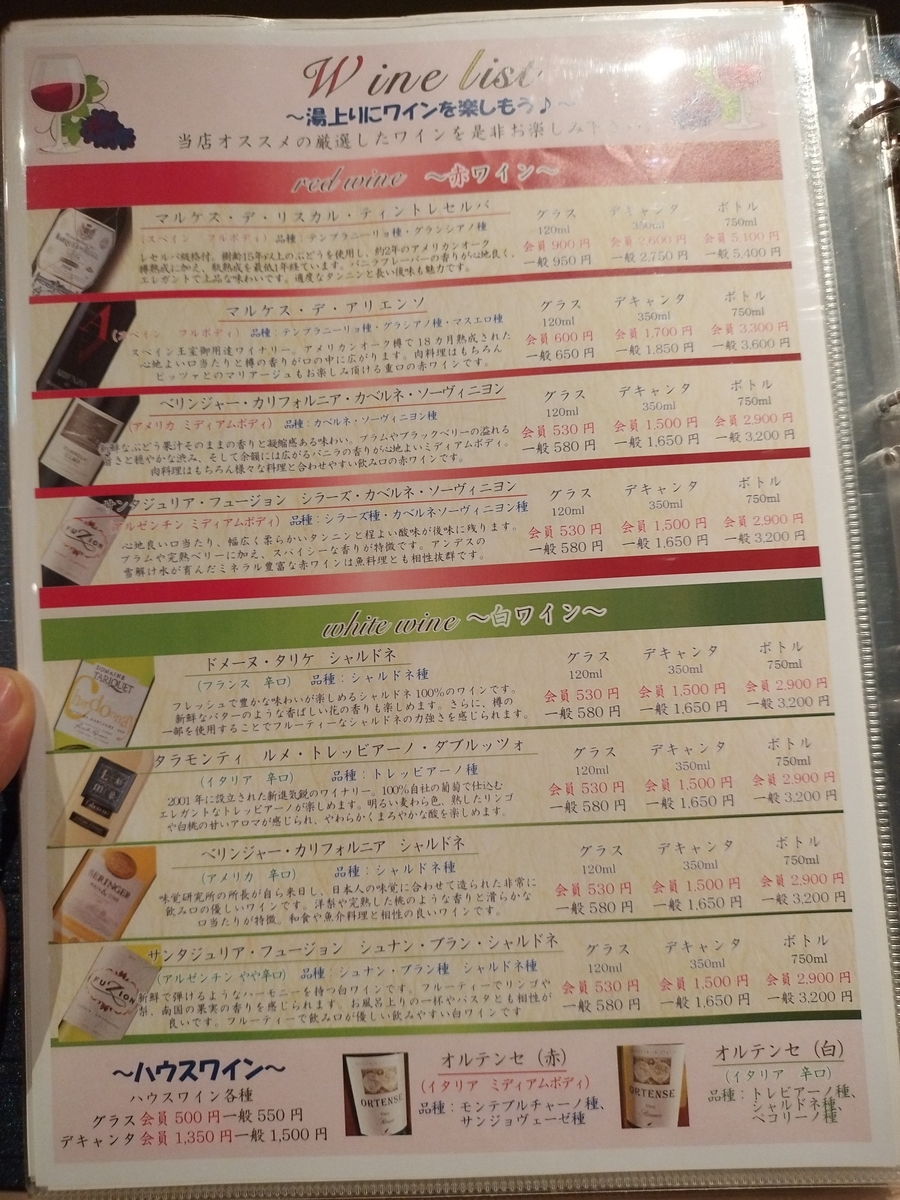 Wine list
～湯上りにワインを楽しもう♪～
当店オススメの厳選したワインを是非お楽しみ下さい
red wine ～赤ワイン～
マルケス・デ・リスカル・ティントレセルバ
(スペイン フルボディ) 品種：テンプラニーリョ種・グランシアノ種
レセルバ級格付。樹齢15年以上のぶどうを使用し、約2年のアメリカンオーク
樽熟成に加え、瓶熟成を最低1年経ています。バニラフレーバーの香りが心地良く、
エレガントで上品な味わいです。適度なタンニンと長い後味も魅力です。
グラス デキャンタ ボトル
120ml 350ml 750ml
会員 900 円 会員 2,600 円 会員 5,100 円
一般 950 円 一般 2,750 円 一般 5,400 円
マルケス・デ・アリエンソ
(スペイン フルボディ) 品種：テンプラニーリョ種・グラシアノ種・マスエロ種
スペイン王室御用達ワイナリー。アメリカンオーク樽で18カ月熟成された
心地よい口当たりと樽の香りが口の中に広がります。肉料理はもちろん
ピッツァとのマリアージュもお楽しみ頂ける重口の赤ワインです。
グラス デキャンタ ボトル
120ml 350ml 750ml
会員 600 円 会員 1,700 円 会員 3,300 円
一般 650 円 一般 1,850 円 一般 3,600 円
ベリンジャー・カリフォルニア・カベルネ・ソーヴィニヨン
(アメリカ ミディアムボディ) 品種：カベルネ・ソーヴィニヨン種
新鮮なぶどう果汁そのままの香りと凝縮感ある味わい。プラムやブラックベリーの溢れる
旨さと穏やかな渋み、そして余韻には広がるバニラの香りが心地よいミディアムボディ。
肉料理はもちろん様々な料理と合わせやすい飲み口の赤ワインです。
グラス デキャンタ ボトル
120ml 350ml 750ml
会員 530 円 会員 1,500 円 会員 2,900 円
一般 580 円 一般 1,650 円 一般 3,200 円
サンタジュリア・フュージョン シラーズ・カベルネ・ソーヴィニヨン
(アルゼンチン ミディアムボディ) 品種：シラーズ種・カベルネソーヴィニヨン種
心地良い口当たり、幅広く柔らかいタンニンと程よい酸味が後味に残ります。
プラムや完熟ベリーに加え、スパイシーな香りが特徴です。アンデスの
雪解け水が育んだミネラル豊富な赤ワインは魚料理とも相性抜群です。
FUZION
グラス デキャンタ ボトル
120ml 350ml 750ml
会員 530 円 会員 1,500 円 会員 2,900 円
一般 580 円 一般 1,650 円 一般 3,200 円
white wine ～白ワイン～
ドメーヌ・タリケ シャルドネ
(フランス 辛口) 品種：シャルドネ種
フレッシュで豊かな味わいが楽しめるシャルドネ100%のワインです。
新鮮なバターのような香ばしい花の香りも楽しめます。さらに、樽の
一部を使用することでフルーティーなシャルドネの力強さを感じられます。
DOMAINE
TARIQUET
Chardonnay
グラス デキャンタ ボトル
120ml 350ml 750ml
会員 530 円 会員 1,500 円 会員 2,900 円
一般 580 円 一般 1,650 円 一般 3,200 円
タラモンティ ルメ・トレッビアーノ・ダブルッツォ
(イタリア 辛口) 品種：トレッビアーノ種
2001年に設立された新進気鋭のワイナリー。100%自社の葡萄で仕込む
エレガントなトレッビアーノが楽しめます。明るい麦わら色、熟したリンゴ
や白桃の甘いアロマが感じられ、やわらかくまろやかな酸を楽しめます。
グラス デキャンタ ボトル
120ml 350ml 750ml
会員 530 円 会員 1,500 円 会員 2,900 円
一般 580 円 一般 1,650 円 一般 3,200 円
ベリンジャー・カリフォルニア シャルドネ
(アメリカ 辛口) 品種：シャルドネ種
味覚研究所の所長が自ら来日し、日本人の味覚に合わせて造られた非常に
飲み口の優しいワインです。洋梨や完熟した桃のような香りと滑らかな
口当たりが特徴。和食や魚介料理と相性の良いワインです。
BERINGER
グラス デキャンタ ボトル
120ml 350ml 750ml
会員 530 円 会員 1,500 円 会員 2,900 円
一般 580 円 一般 1,650 円 一般 3,200 円
サンタジュリア・フュージョン シュナン・ブラン・シャルドネ
(アルゼンチン やや辛口) 品種：シュナン・ブラン種 シャルドネ種
新鮮で弾けるようなハーモニーを持つ白ワインです。フルーティーでリンゴや
梨、南国の果実の香りを感じられます。お風呂上りの一杯やパスタとも相性が
良いです。フルーティーで飲み口が優しい飲みやすい白ワインです
FUZION
グラス デキャンタ ボトル
120ml 350ml 750ml
会員 530 円 会員 1,500 円 会員 2,900 円
一般 580 円 一般 1,650 円 一般 3,200 円
～ハウスワイン～
ハウスワイン各種
グラス 会員 500 円 一般 550 円
デキャンタ 会員 1,350 円 一般 1,500 円
ORTENSE
オルテンセ（赤）
(イタリア ミディアムボディ)
品種：モンテプルチャーノ種、
サンジョヴェーゼ種
ORTENSE
オルテンセ（白）
(イタリア 辛口)
品種：トレビアーノ種、
シャルドネ種、
ペコリーノ種